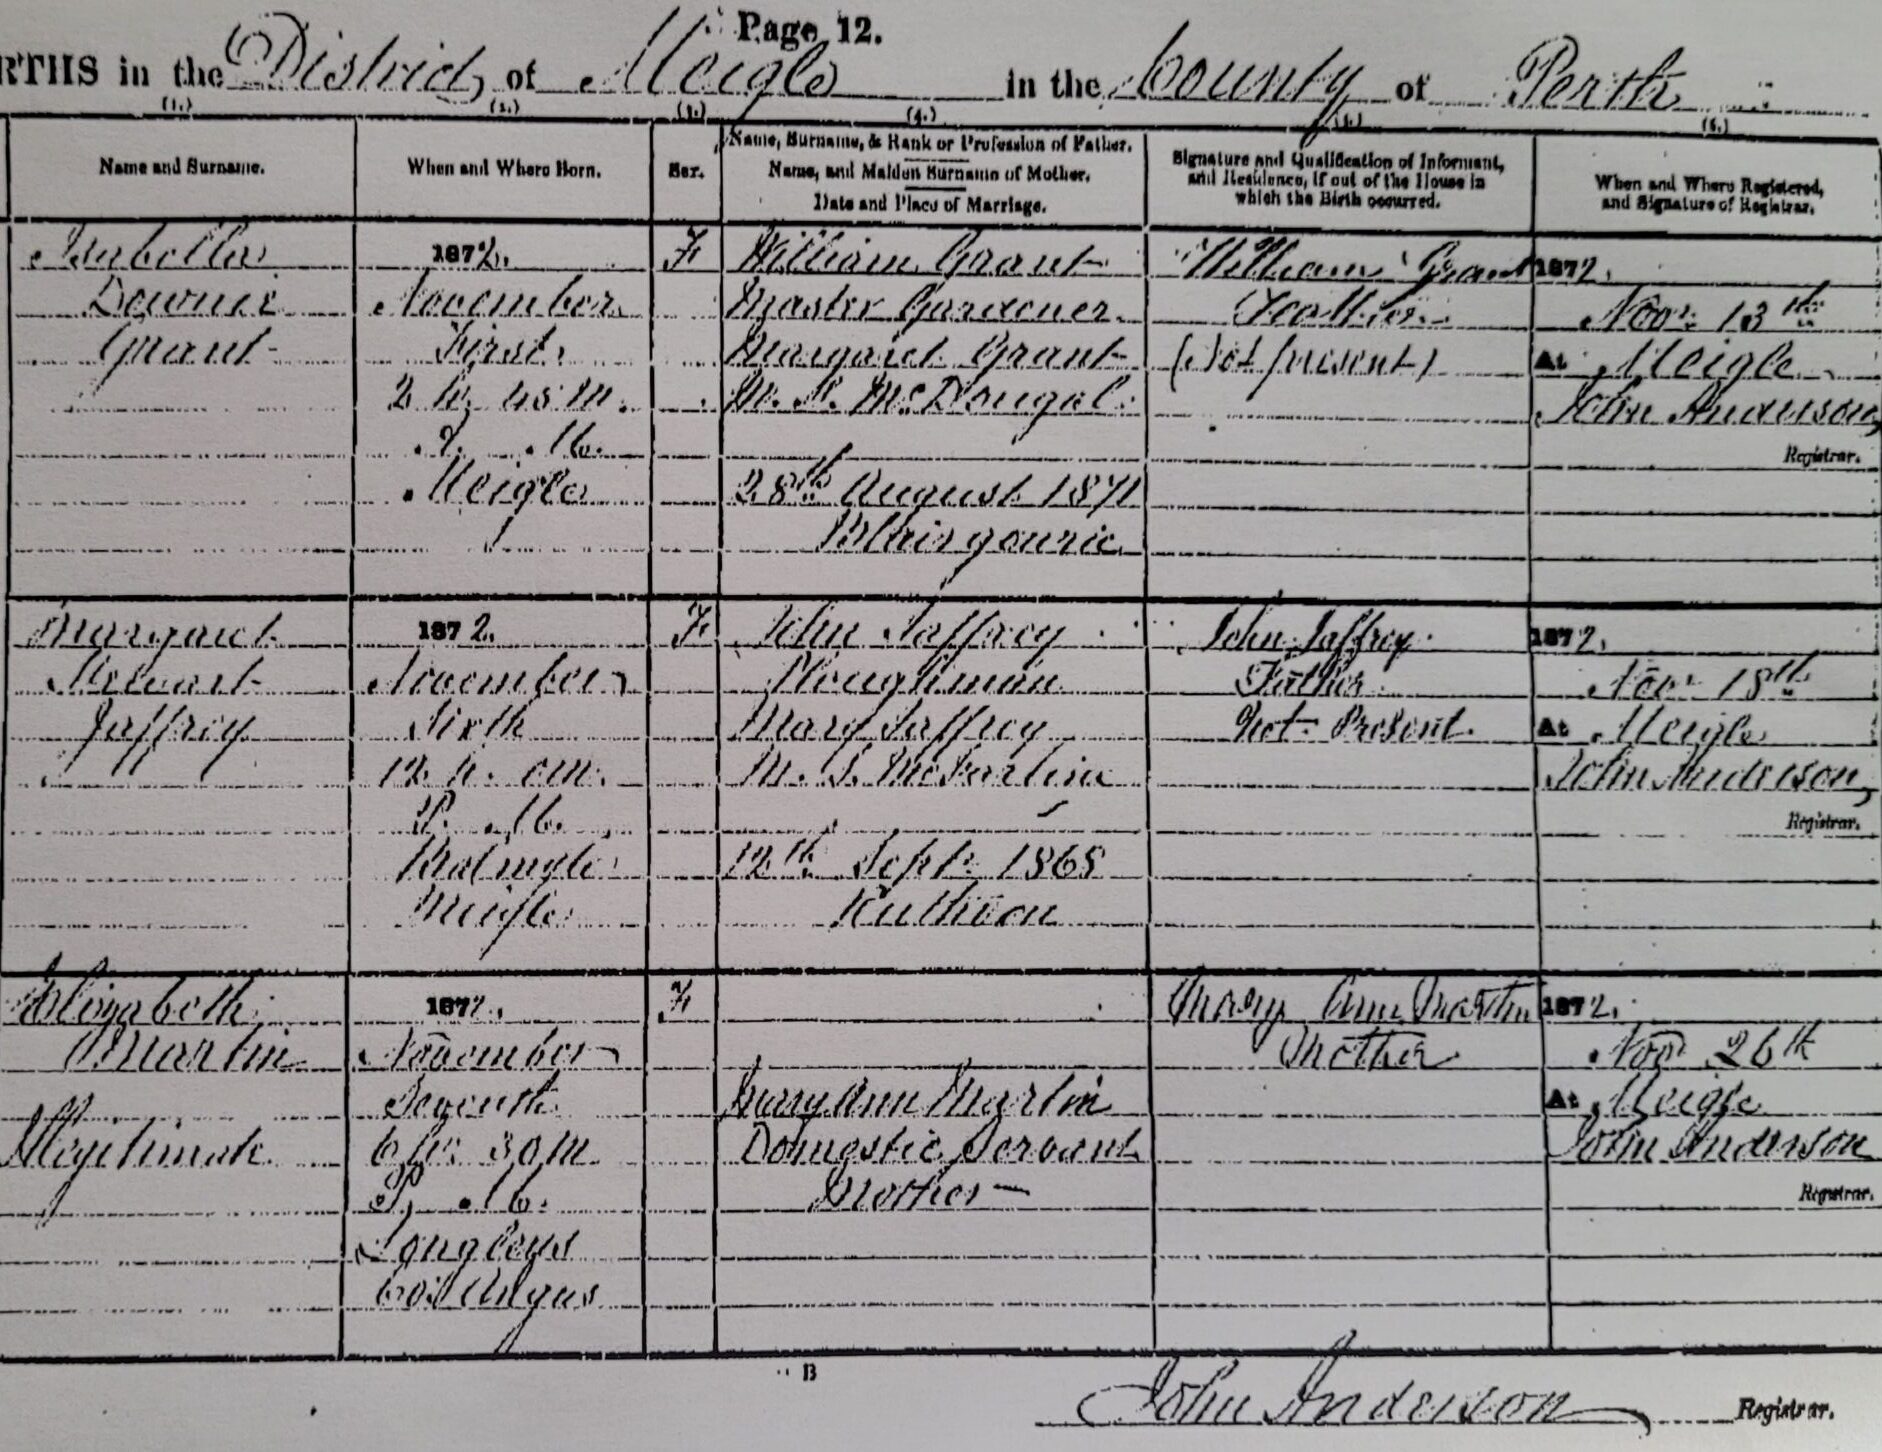 Page 12.
RTHS in the District of Meigle in the County of Perth
(1.) (2.) (3.) (4.) (5.) (6.)
Name and Surname.
When and Where Born.
Sex.
Name, Surname, & Rank or Profession of Father.
Name, and Maiden Surname of Mother.
Date and Place of Marriage.
Signature and Qualification of Informant,
and Residence, if out of the House in
which the Birth occurred.
When and Where Registered,
and Signature of Registrar.
Isabella
Downie
Grant
1872.
November
First
2 h. 45 m.
M.
Meigle
F
William Grant
Master Gardener
Margaret Grant
M. S. McDougal
28th August 1871
Blairgowrie
William Grant
Father
(Not present)
1872.
Novr 13th
At Meigle
John Anderson,
Registrar.
Margaret
Stewart
Jaffrey
1872.
November
Sixth
12 h. 0m.
P. M.
Meigle
F
John Jaffrey
Ploughman
Mary Jaffrey
M. S. McFarlane
12th Sept. 1868
Ruthven
John Jaffrey
Father
Not Present
1872.
Novr 18th
At Meigle
John Anderson,
Registrar.
Elizabeth
Martin
Illegitimate
1872.
November
Seventh
6 h. 30 m
P. M.
Longleys
Co. Angus
F
Mary Ann Martin
Domestic Servant
Mother
Mary Ann Martin
Mother
1872.
Nov 26th
At Meigle
John Anderson
Registrar.
B
John Anderson Registrar.